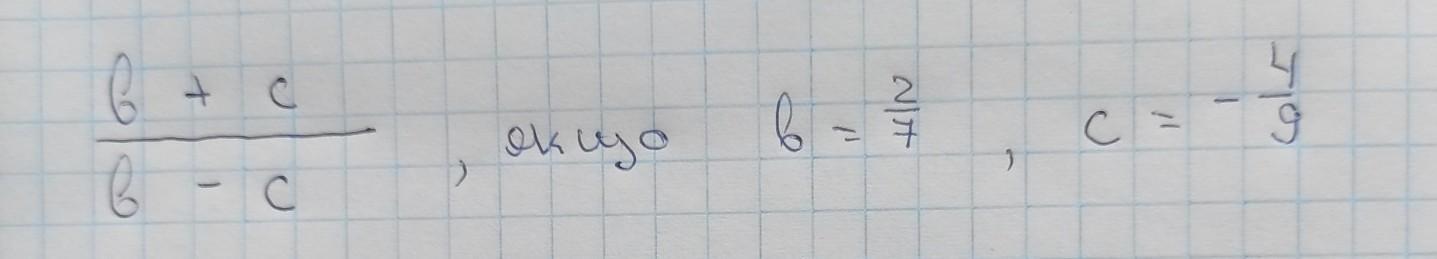 (b + c)/(b - c), якщо b = 2/7, c = -4/9